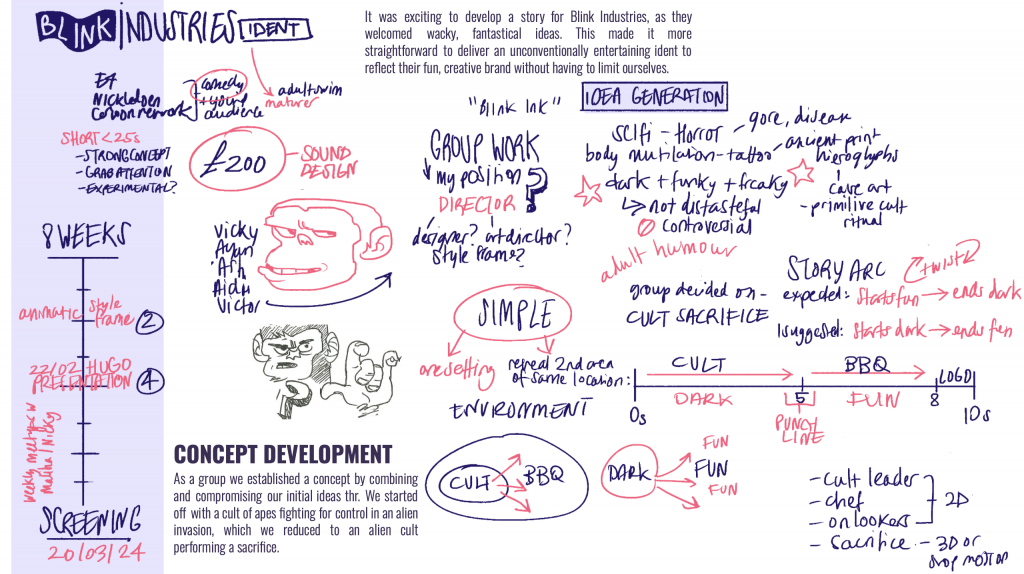 BLINK INDUSTRIES IDENT
It was exciting to develop a story for Blink Industries, as they
welcomed wacky, fantastical ideas. This made it more
straightforward to deliver an unconventionally entertaining ident to
reflect their fun, creative brand without having to limit ourselves.
E4
Nickleloden
Cartoon network
comedy
+ young
audience
adultswim
maturer
SHORT < 25s
- STRONG CONCEPT
- GRAB ATTENTION
- EXPERIMENTAL?
£200
- SOUND
DESIGN
"Blink Ink"
GROUP WORK
my position
DIRECTOR
?
designer? art director?
style frame?
IDEA GENERATION
scifi - Horror - gore, disease
body mutilation - tattoo
ancient print
hieroglyphs
cave art
- primitive cult
ritual
dark + funky + freaky
not distasteful
controversial
adult humour
group decided on -
CULT SACRIFICE
STORY ARC
TWIST
expected: starts fun → ends dark
I suggested: starts dark → ends fun
8 WEEKS
animatic
style
frame
2
22/02 HUGO
PRESENTATION
4
Weekly meetups w
Maliha / Nicky
SCREENING
20/03/24
Vicky
Ayan
Ash
Aidu
Victor
SIMPLE
one setting
reveal 2nd area
of same location:
ENVIRONMENT
CULT
BBQ
LOGO
DARK
FUN
0s
5
8
10s
PUNCH
LINE
CULT
BBQ
DARK
FUN
FUN
FUN
CONCEPT DEVELOPMENT
As a group we established a concept by combining
and compromising our initial ideas thr. We started
off with a cult of apes fighting for control in an alien
invasion, which we reduced to an alien cult
performing a sacrifice.
- cult leader
- chef
- onlookers
2D
- sacrifice - 3D or
stop motion